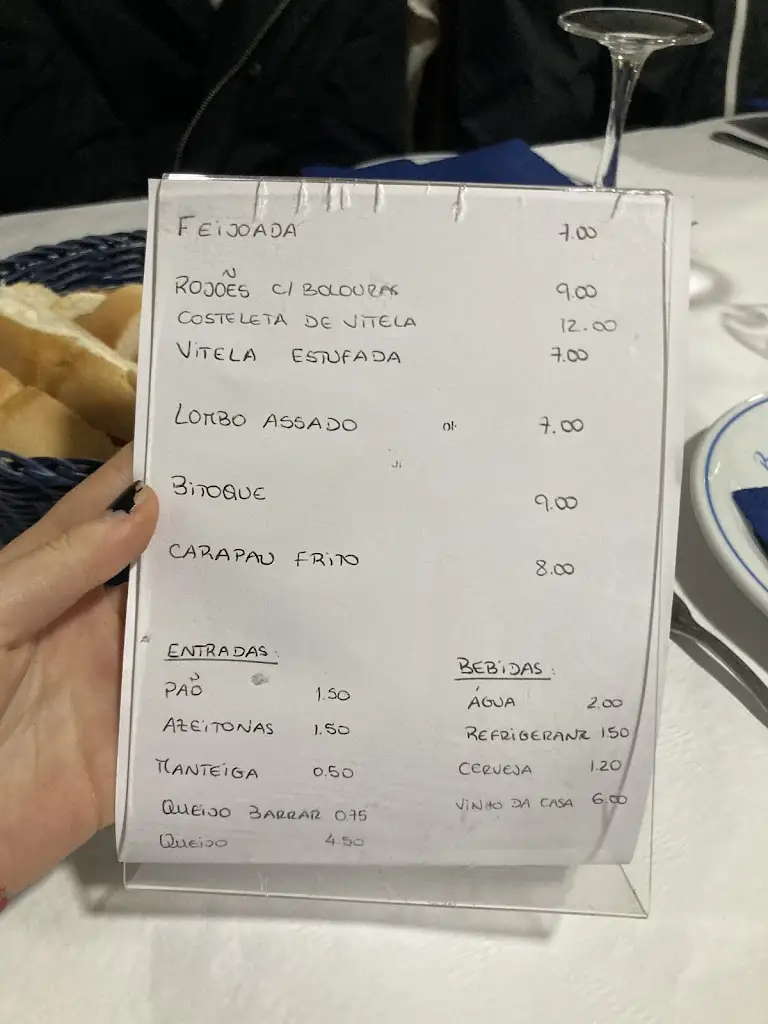 FEIJOADA 7.00
ROJÕES C/ BOLOURAS 9.00
COSTELETA DE VITELA 12.00
VITELA ESTUFADA 7.00
LOMBO ASSADO 7.00
BITOQUE 9.00
CARAPAU FRITO 8.00
ENTRADAS:
PAÕ 1.50
AZEITONAS 1.50
MANTEIGA 0.50
QUEIJO BARRAR 0.75
QUEIJO 4.50
BEBIDAS:
ÁGUA 2.00
REFRIGERANTE 1.50
CERVEJA 1.20
VINHO DA CASA 6.00